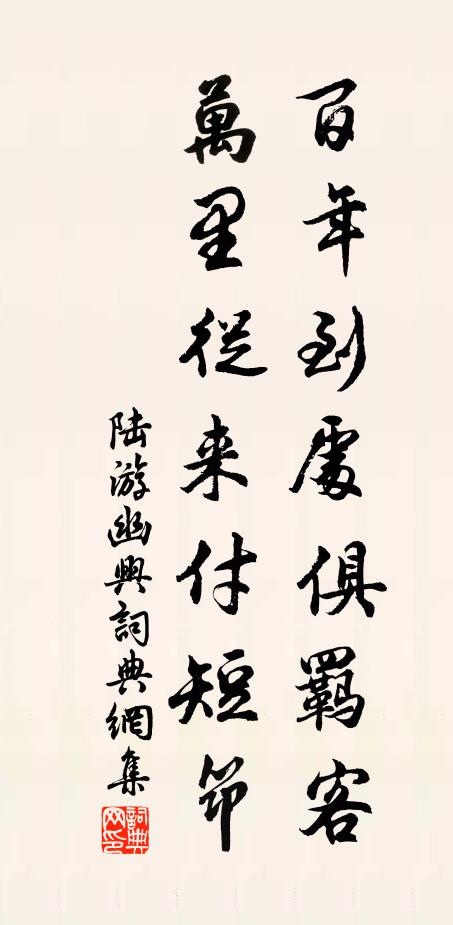 百年到處俱羈客
萬里從来付短筇
陆游幽興詞典網集
詞典网印